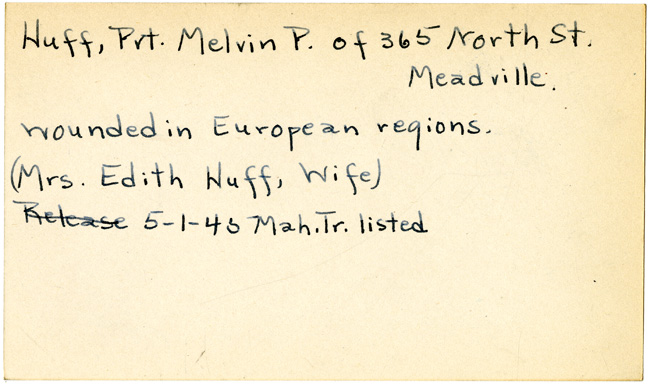 Huff, Pvt. Melvin P. of 365 North St.
Meadville.
wounded in European regions.
(Mrs. Edith Huff, Wife)
Release 5-1-45 Mah. Tr. listed